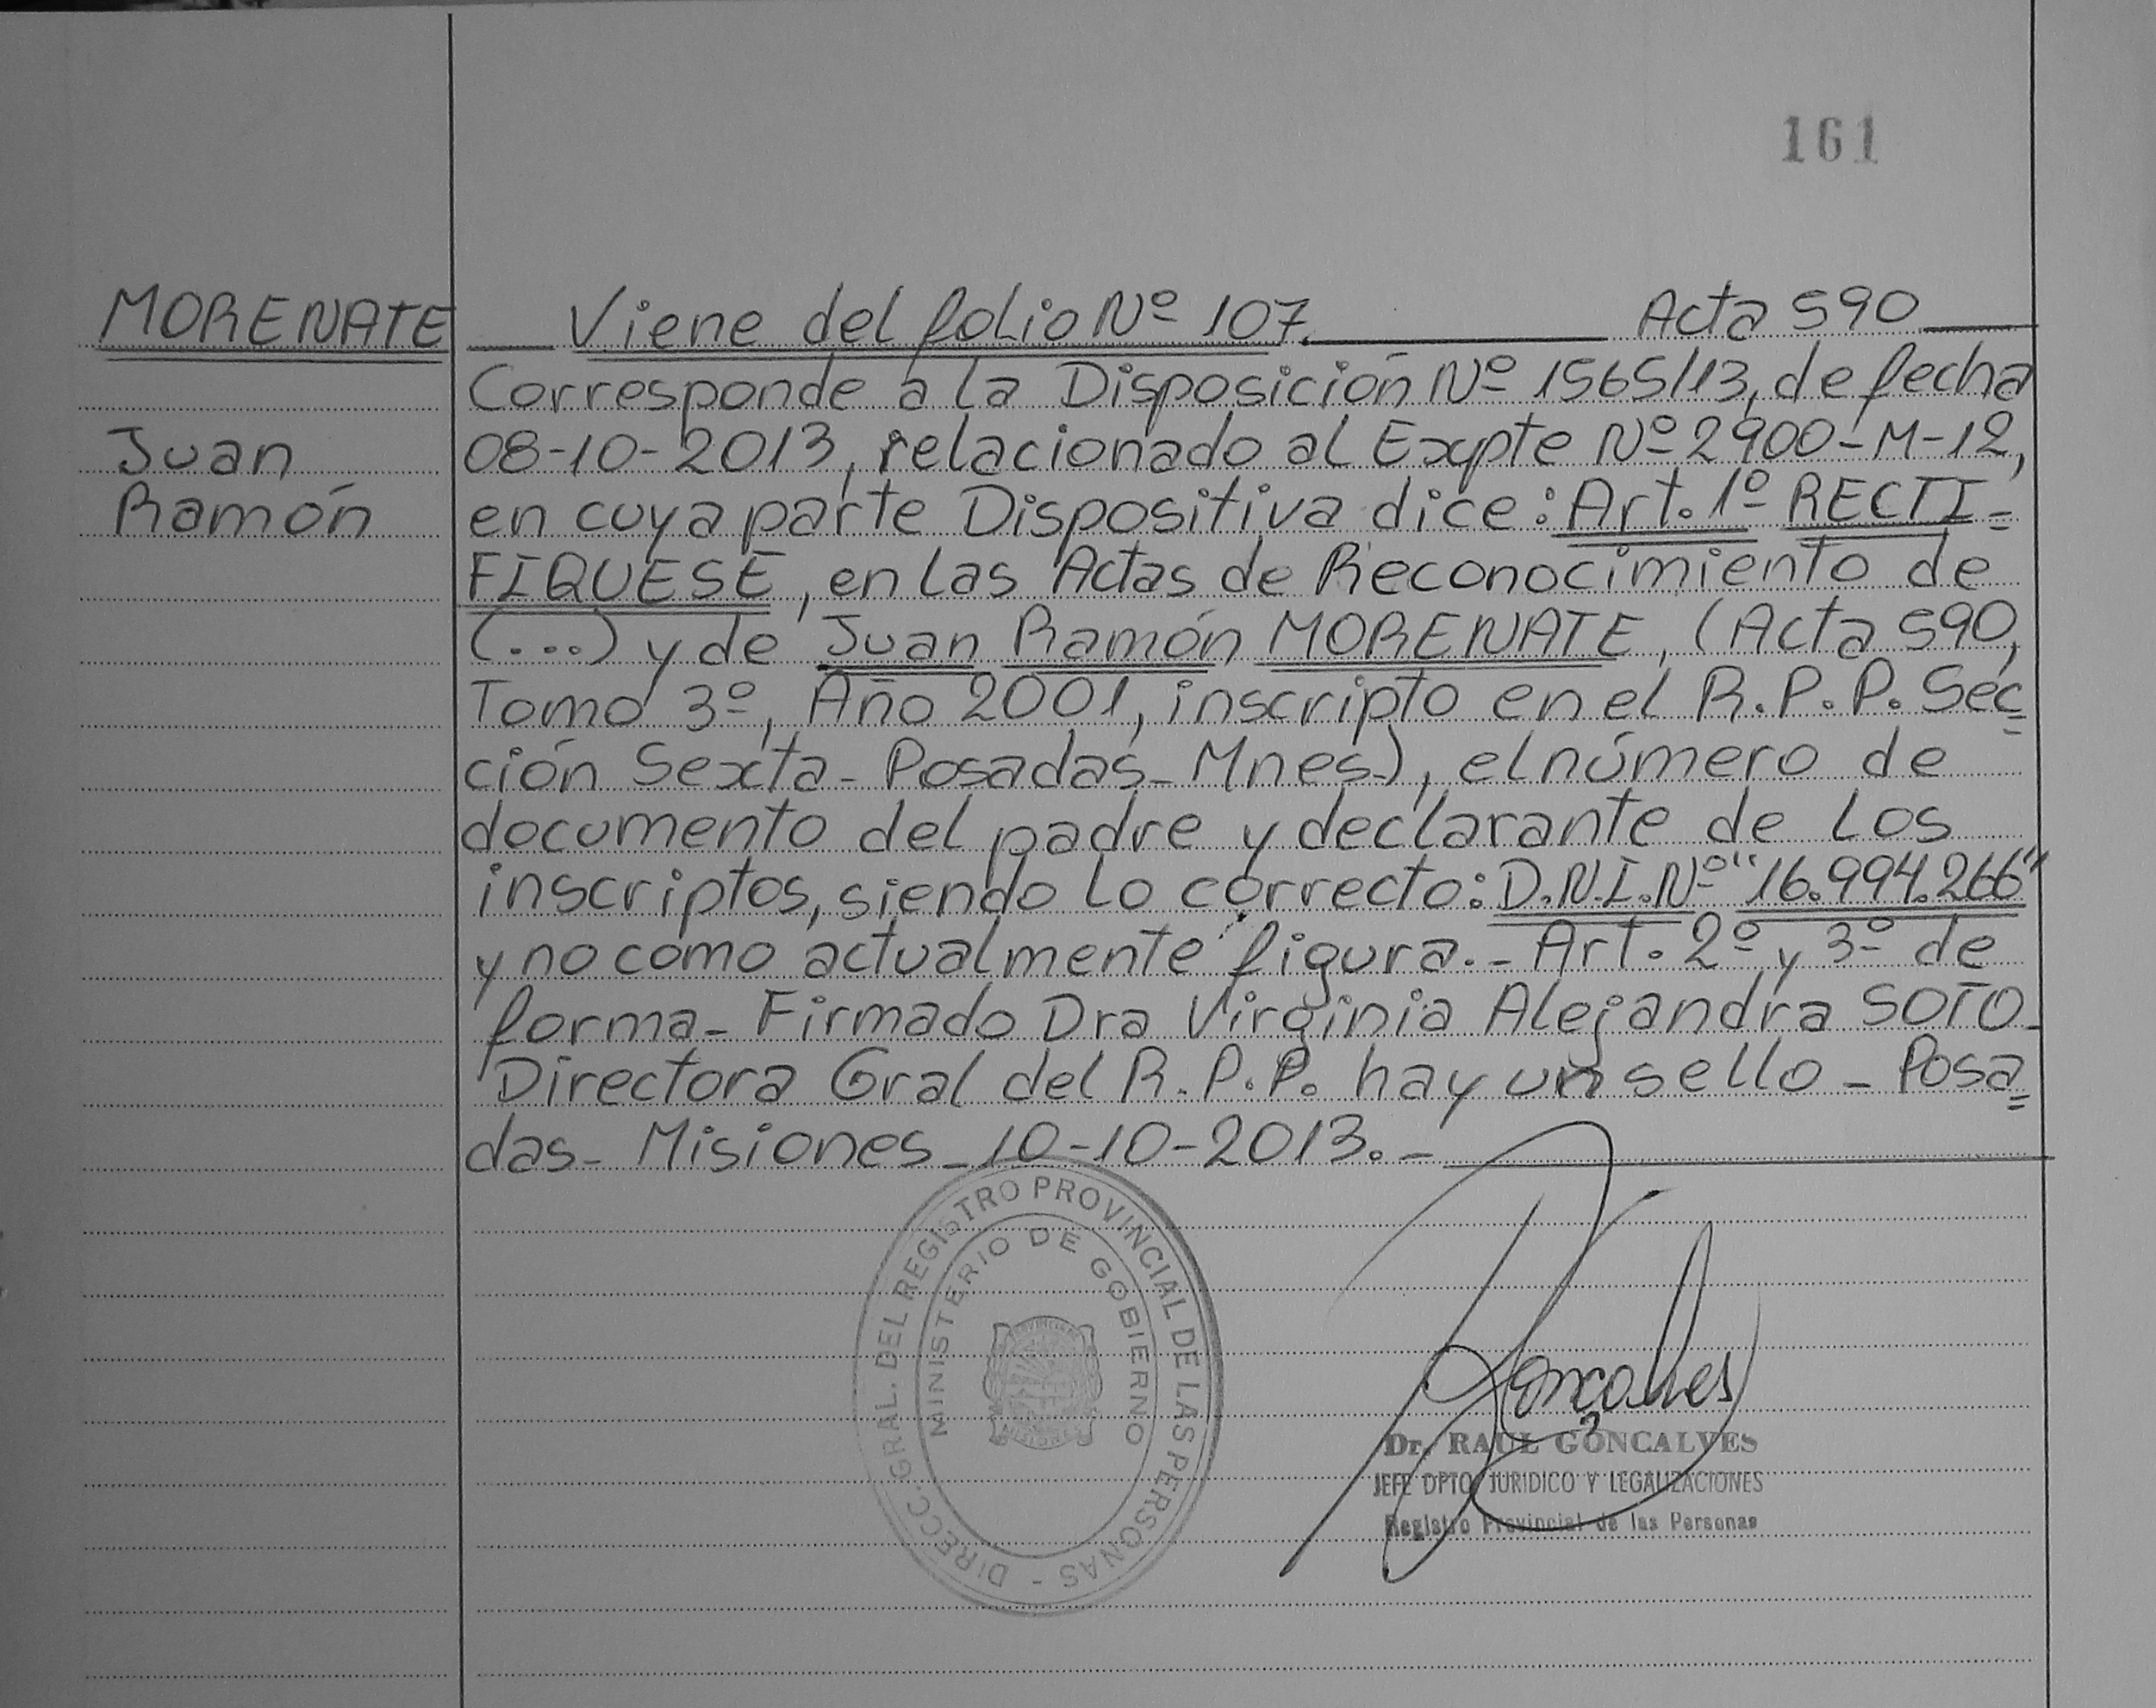 161
MORENATE
Juan
Ramón
Viene del folio Nº 107. Acta 590
Corresponde a la Disposición Nº 1565/13, de fecha
08-10-2013, relacionado al Expte Nº 2900-M-12,
en cuya parte Dispositiva dice: Art. 1º RECTI=
FIQUESE, en las Actas de Reconocimiento de
(...) y de Juan Ramón MORENATE, (Acta 590,
Tomo 3º, Año 2001, inscripto en el R.P.P. Sec=
ción Sexta - Posadas - Mnes.), el número de
documento del padre y declarante de los
inscriptos, siendo lo correcto: D.N.I. Nº "16.994.266"
y no como actualmente figura.- Art. 2º y 3º de
forma - Firmado Dra Virginia Alejandra SOTO -
Directora Gral del R.P.P. hay un sello - Posa=
das - Misiones - 10-10-2013.-
DIRECC. GRAL. DEL REGISTRO PROVINCIAL DE LAS PERSONAS -
MINISTERIO DE GOBIERNO
Gonçalves
Dr. RAUL GONCALVES
JEFE DPTO JURIDICO Y LEGALIZACIONES
Registro Provincial de las Personas